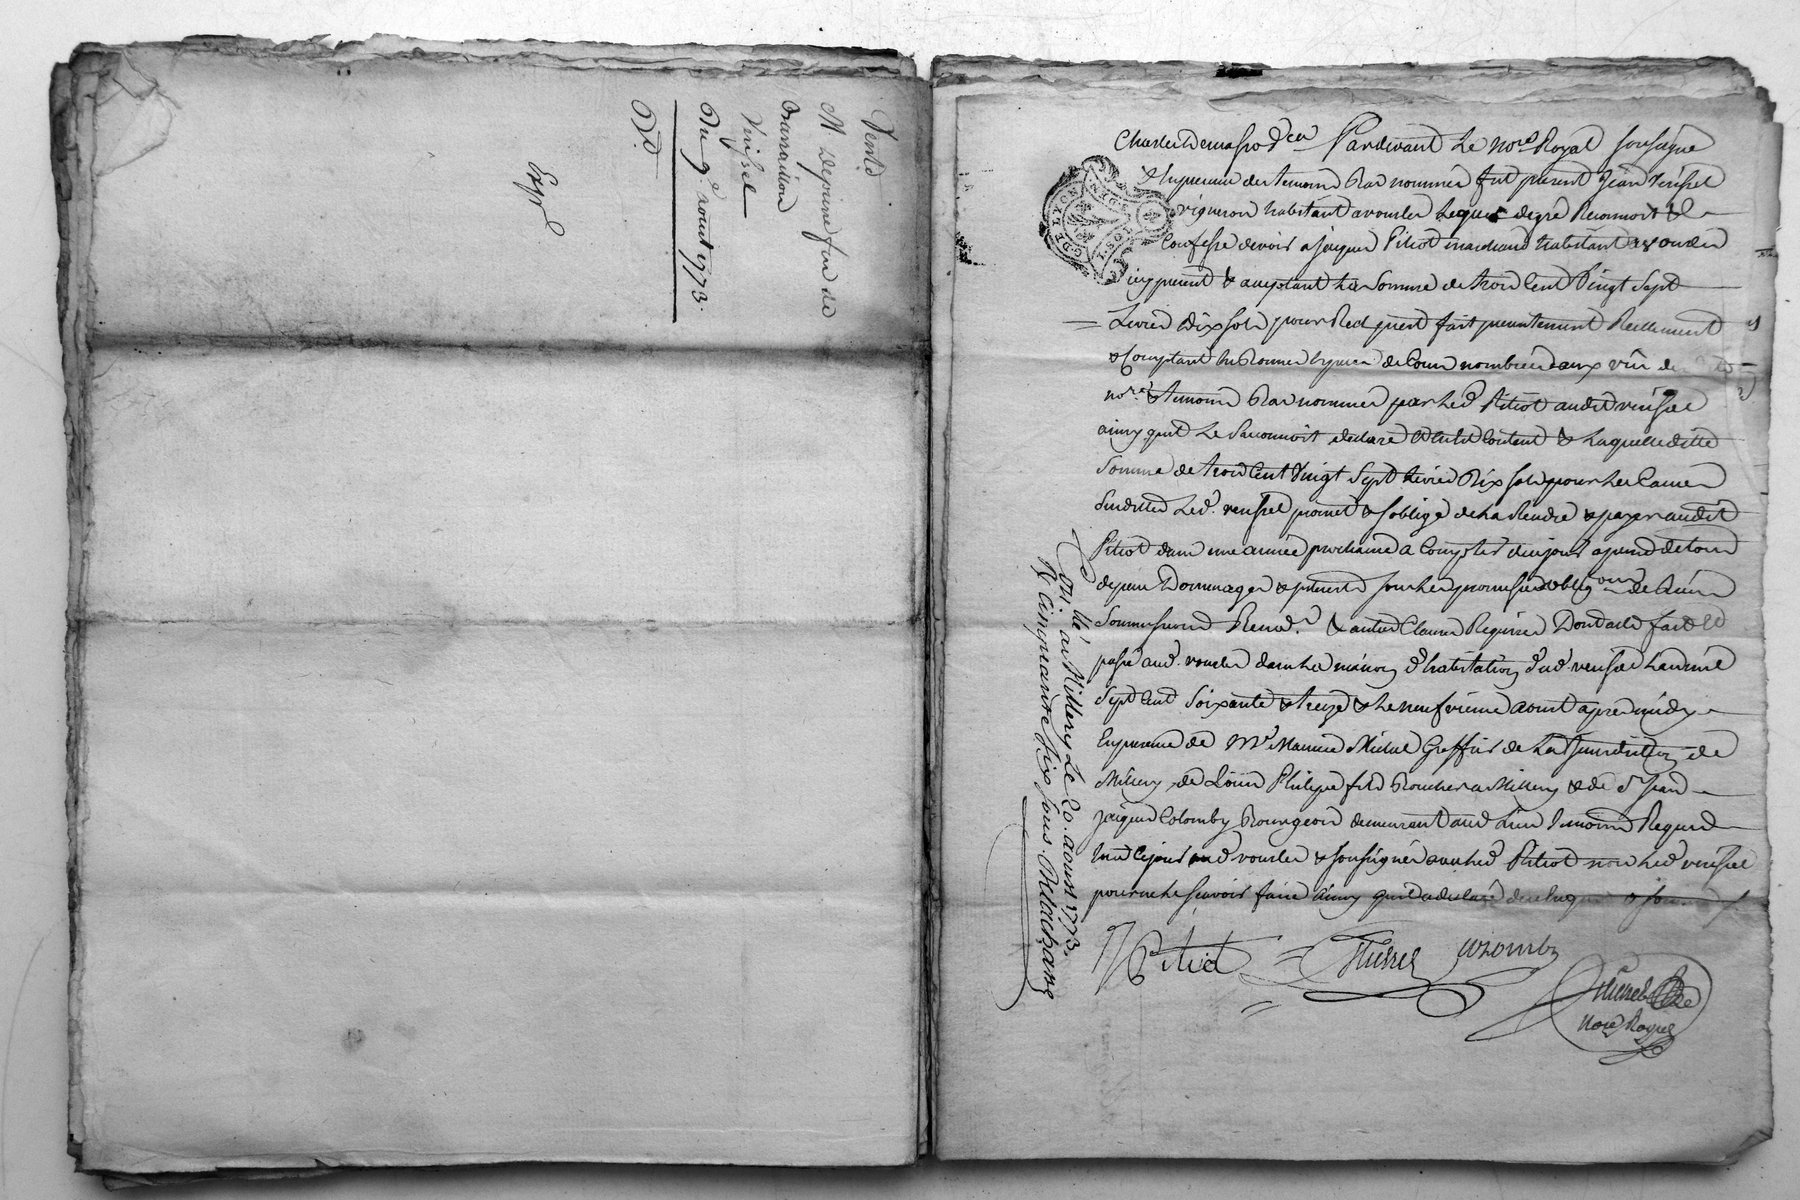 Vente
M Deprinefon de
Verissel
Du 9e aout 1773.
Exp
Pardevant Le nore Royal soussigné
temoins Bas nommés fut présent Jean Verissel
vigneron habitant a vourles Lequel de gré Reconnoit &
Confesse devoir a jacques Pitiot marchand habitant a vourles
icy present & acceptant La Somme de trois Cent Vingt Sept
Livres Dix sols pour Pret fait presentement Reellement
& Comptant En Bonnes Especes de Cour nombrées aux vüe de
nore & temoins Bas nommés par Led Pitiot audit verissel
ainsy quil Le Reconnoit declare Contant & Laquelleditte
Somme de trois Cent Vingt Sept Livres Dix sols pour Les Causes
Susdittes Led. verissel promet & s'oblige de La Rendre & payer audit
Pitiot dans une année prochaine a Compter du jour a peine de tous
depens Dommages & interets sous Les promesses oblig ons de Biens
Soumissions Renon. & autres Clauses Requises Dont acte fait &
passé aud. vourles dans La maison D'habitation dud verissel L'an mil
Sept Cent Soixante & treize & Le neufvieme Aout apres midy
En presence de Mr Maurice Michel Greffier de La Jurisdiction de
Millery, de Loüis Philipe fils Boucher a Millery & de Sr Jean
Jacques Colomby Bourgeois demeurant aud Lieu temoins Requis
& soussignés avec Led Pitiot non Led verissel
pour ne Le sçavoir faire ainsy quil a declaré de ce Enquis &
Pitiot
Colomby
Nore Royal
Con lé a Millery Le 20. aoust 1773
R. cinquante six sous. Delachana